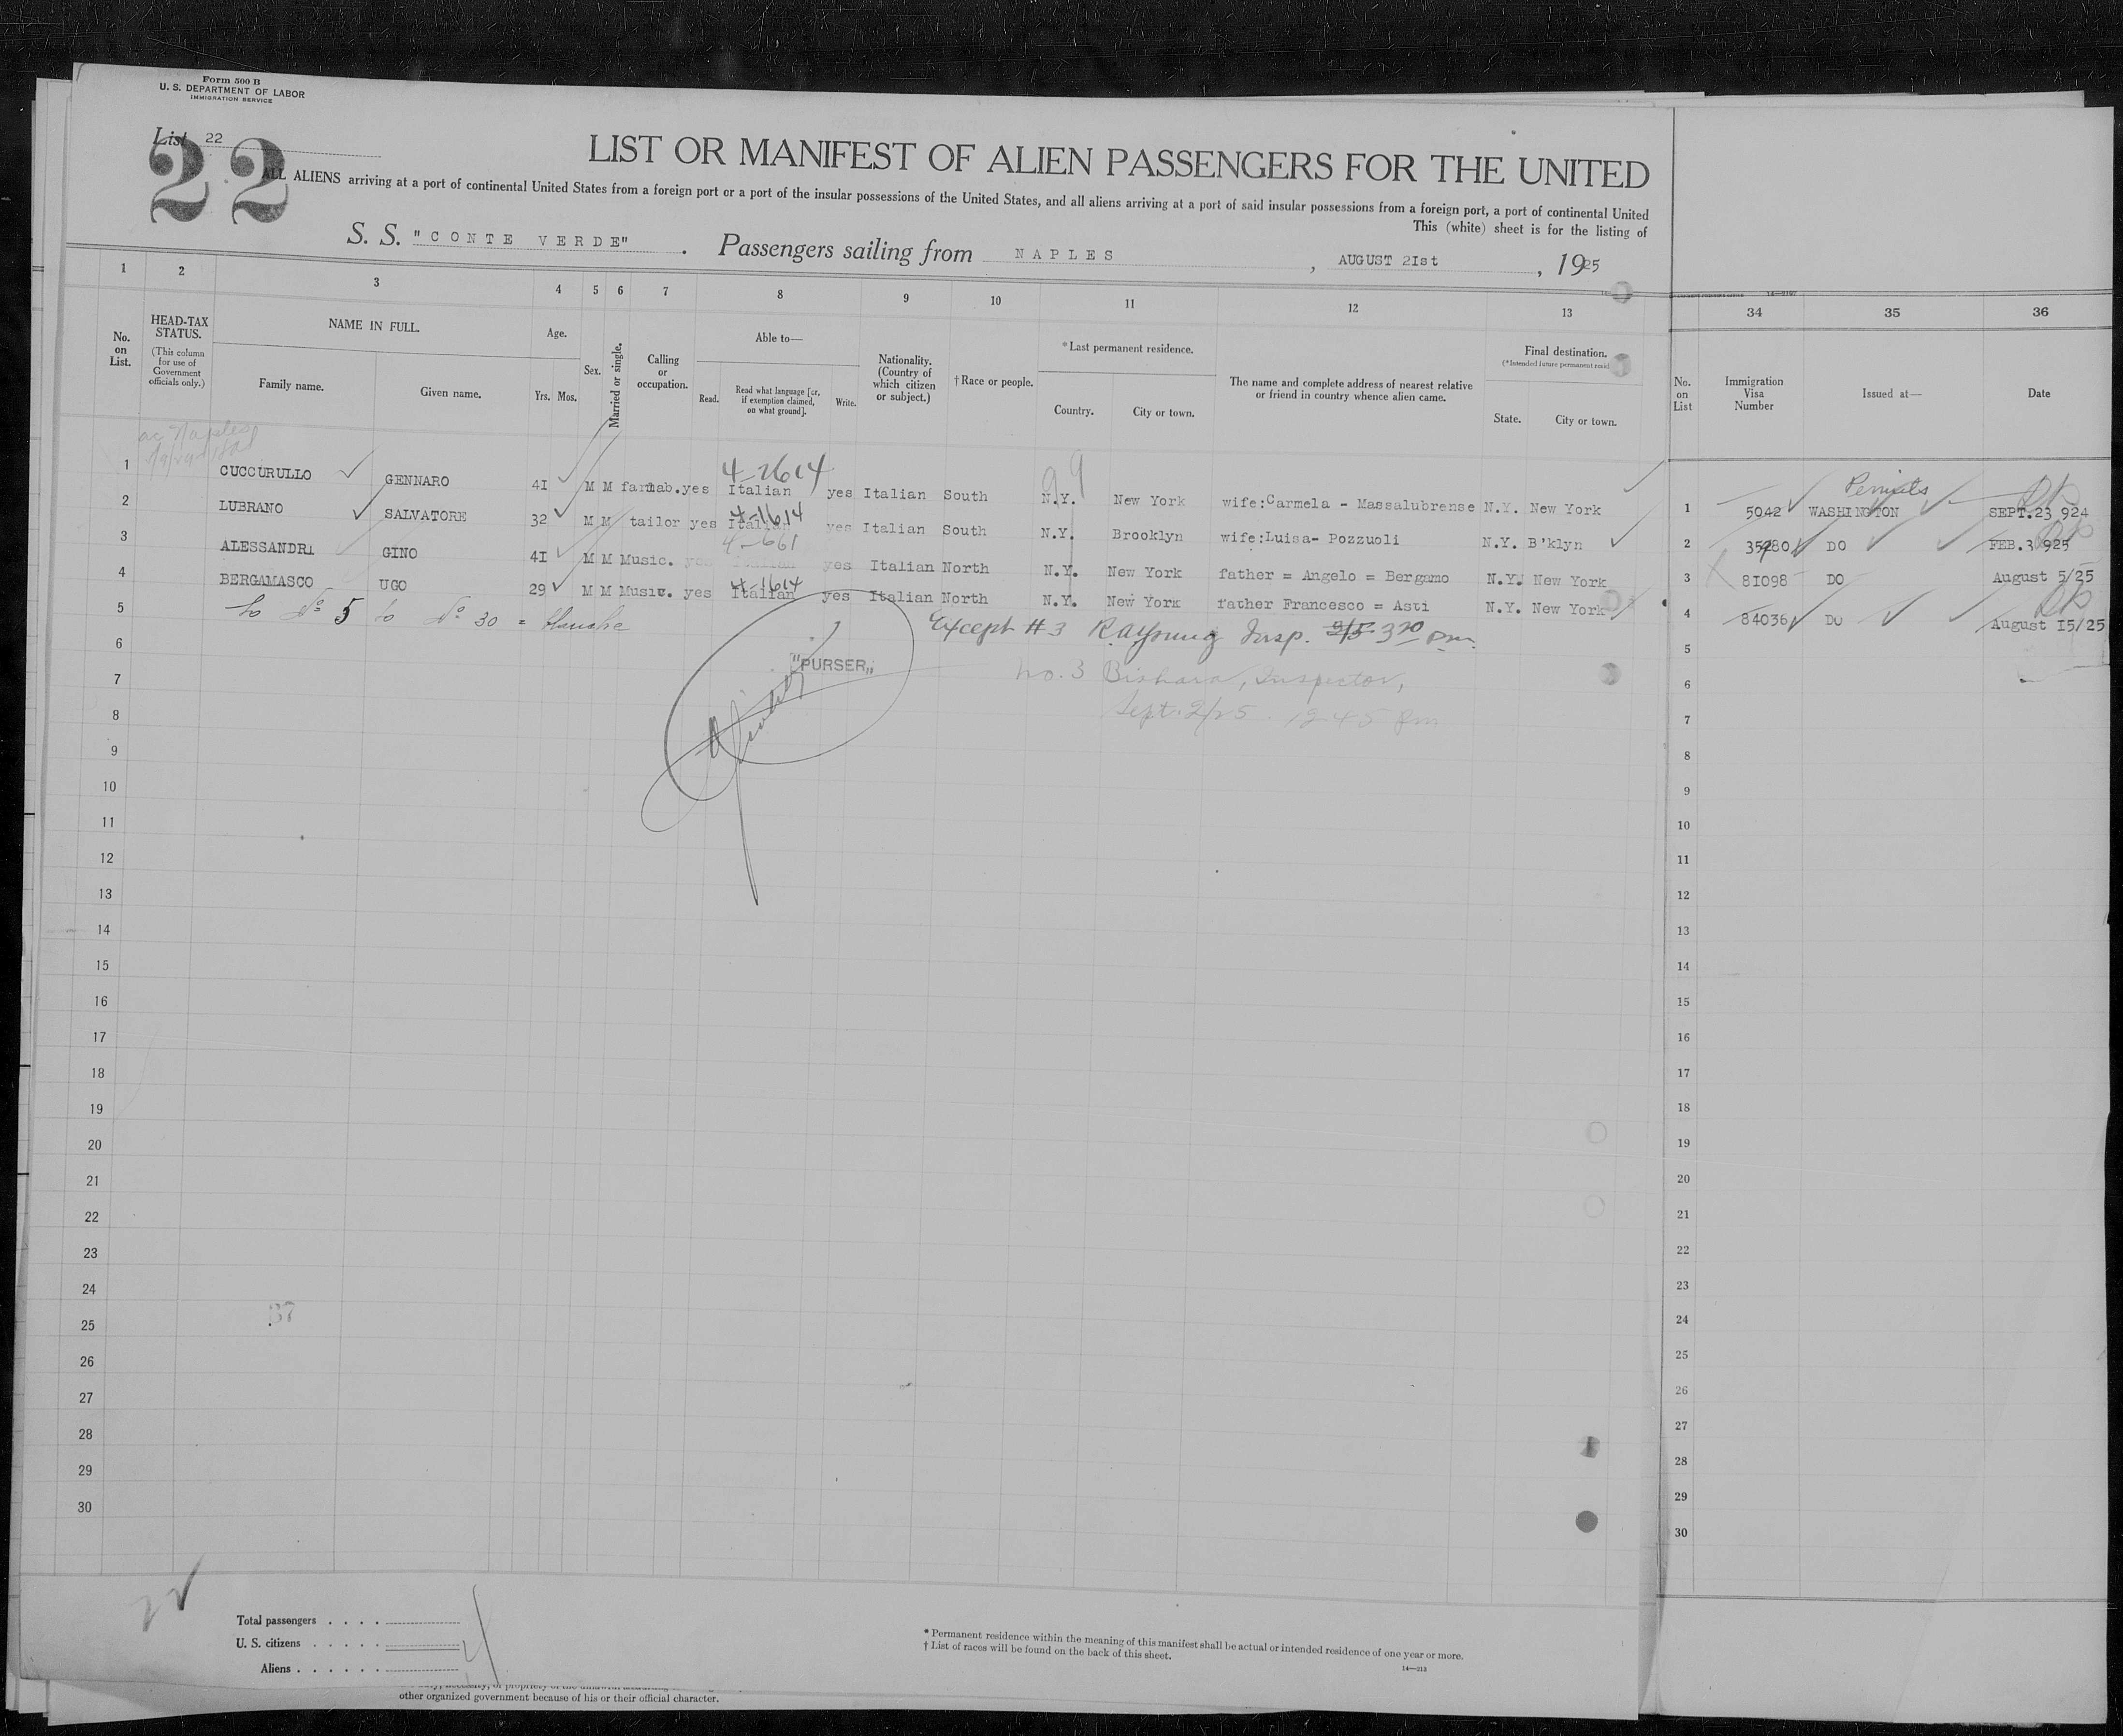 Form 500 B
U. S. DEPARTMENT OF LABOR
IMMIGRATION SERVICE
List 22
22
LIST OR MANIFEST OF ALIEN PASSENGERS FOR THE UNITED
ALL ALIENS arriving at a port of continental United States from a foreign port or a port of the insular possessions of the United States, and all aliens arriving at a port of said insular possessions from a foreign port, a port of continental United
This (white) sheet is for the listing of
S. S. "CONTE VERDE" . Passengers sailing from NAPLES , AUGUST 2Ist , 1925
1 2 3 4 5 6 7 8 9 10 11 12 13 34 35 36
No. on List.
HEAD-TAX STATUS.
(This column for use of Government officials only.)
NAME IN FULL.
Family name. Given name.
Age.
Yrs. Mos.
Sex.
Married or single.
Calling or occupation.
Able to—
Read. Read what language [or, if exemption claimed, on what ground]. Write.
Nationality. (Country of which citizen or subject.)
† Race or people.
* Last permanent residence.
Country. City or town.
The name and complete address of nearest relative or friend in country whence alien came.
Final destination.
(*Intended future permanent resid
State. City or town.
No. on List
Immigration Visa Number
Issued at—
Date
ac Naples
4-2614
99
Permits
1 CUCCURULLO GENNARO 4I M M farmlab. yes Italian yes Italian South N.Y. New York wife:Carmela - Massalubrense N.Y. New York 1 5042 WASHINGTON SEPT.23 924
4-1614
2 LUBRANO SALVATORE 32 M M tailor yes Italian yes Italian South N.Y. Brooklyn wife:Luisa- Pozzuoli N.Y. B'klyn 2 35980 DO FEB.3 925
4-661
3 ALESSANDRI GINO 4I M M Music. yes Italian yes Italian North N.Y. New York father = Angelo = Bergamo N.Y. New York 3 8I098 DO August 5/25
4-1614
4 BERGAMASCO UGO 29 M M Music. yes Italian yes Italian North N.Y. New York father Francesco = Asti N.Y. New York 4 84036 DO August I5/25
5 to No 5 to No 30 = blanche Except #3 R A Young Insp. 9/5 3 20 pm. 5
6 "PURSER" no. 3 Bishara, Inspector, 6
7 Sept. 2/25. 12 45 pm 7
8 8
9 9
10 10
11 11
12 12
13 13
14 14
15 15
16 16
17 17
18 18
19 19
20 20
21 21
22 22
23 23
24 24
37
25 25
26 26
27 27
28 28
29 29
30 30
22
Total passengers . . . .
U. S. citizens . . . . .
Aliens . . . . . .
4
* Permanent residence within the meaning of this manifest shall be actual or intended residence of one year or more.
† List of races will be found on the back of this sheet.
14—313
other organized government because of his or their official character.